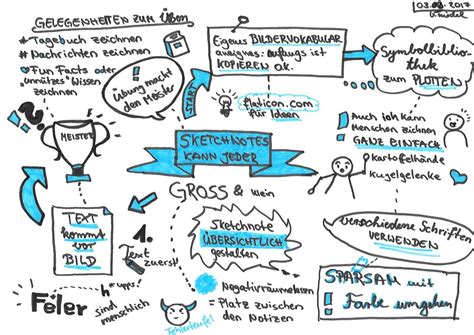 GELEGENHEITEN ZUM ÜBEN
# Tagebuch zeichnen
# Nachrichten zeichnen
Fun Facts oder
unnützes Wissen
zeichnen
Übung macht
den Meister
START
Eigenes BILDERVOKABULAR
aneignen. Anfangs ist
KOPIEREN OK.
Symbolbiblio-
thek
zum PLOTTEN
flaticon.com
für Ideen
???
MEISTER
SKETCHNOTES
KANN JEDER
! Auch ich kann
Menschen zeichnen
! GANZ EINFACH
Kartoffelhände
Kugelgelenke
GROSS & klein
TEXT
kommt
vor
BILD
1.
Text
zuerst!
Sketchnote
ÜBERSICHTLICH
gestalten
verschiedene Schriften
VERWENDEN
Feler
hups!
sind
menschlich
Fehlerteufel
Negativräume lassen
= Platz zwischen
den Notizen
! SPARSAM mit
! Farbe umgehen